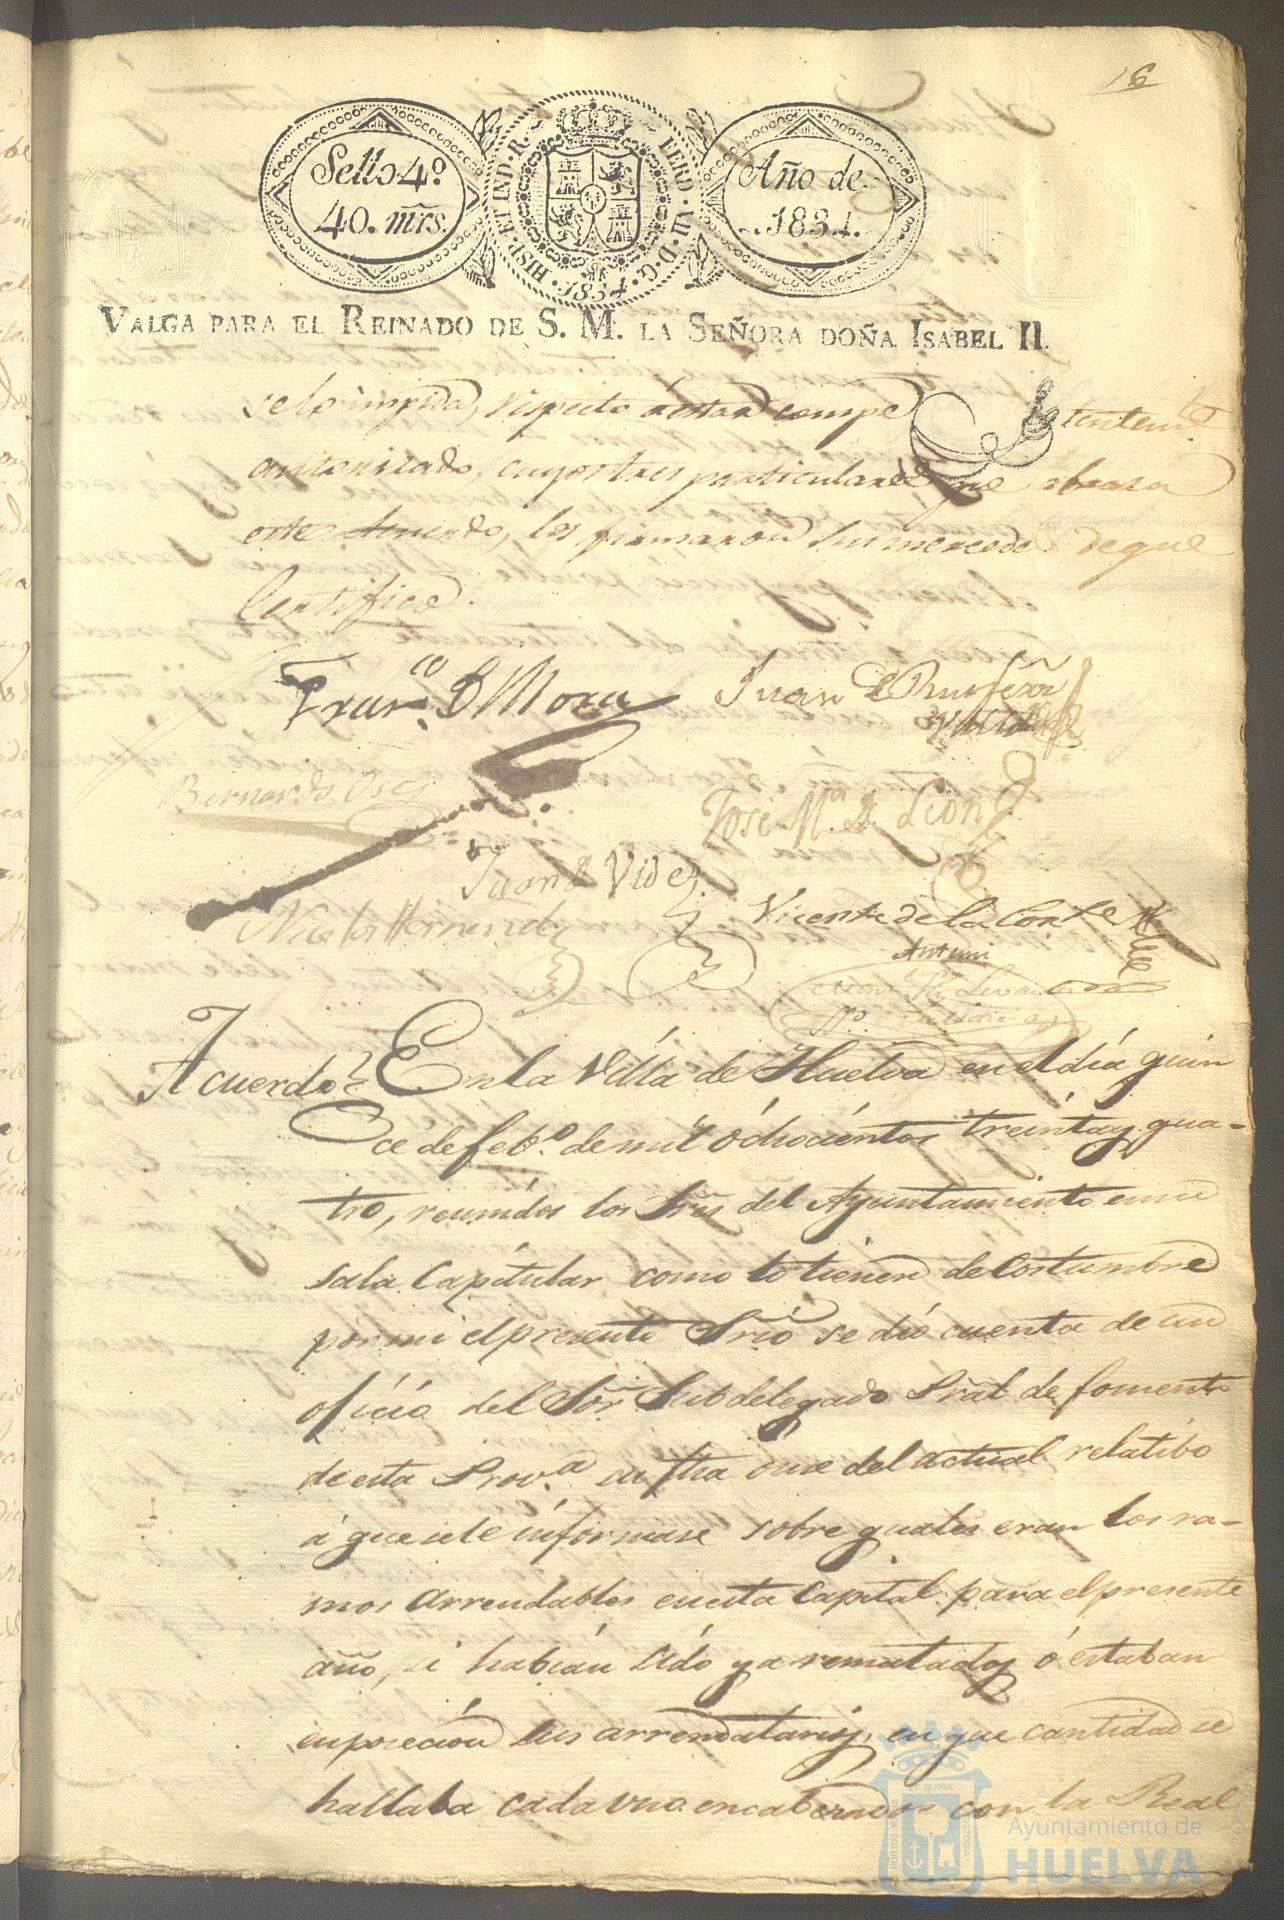 16
Sello 4º
40. mrs.
HISP. ET IND. R.
FERD. VII. D. G.
1834.
Año de
1834.
VALGA PARA EL REINADO DE S. M. LA SEÑORA DOÑA ISABEL II.
se lo impida, respecto á estar compe tentemte
autorizado, cuyos tres particulares que abraza
este Acuerdo, los firmaron sus mercedes de que
Certifico.
Franco. D Mora
Juan D
Bernardo
José Mª. D. León
Juan D Vides
Nicolas Hernandz
Vicente de la Corte
Ante mi
Acuerdo
En la Villa de Huelva en el día quin
ce de febo. de mil ochocientos treinta y qua-
tro, reunidos los Sres del Ayuntamiento en su
sala Capitular como lo tienen de costumbre
por mi el presente Srio se dió cuenta de un
oficio del Sor Subdelegado Pral de fomento
de esta Prova. su fha once del actual relatibo
á que se le informase sobre quales eran los ra-
mos arrendables en esta Capital para el presente
año, si habian sido ya rematados ó estaban
en posecion sus arrendatarios, en que cantidad se
hallaba cada uno encabezado con la Real
Ayuntamiento de
HUELVA